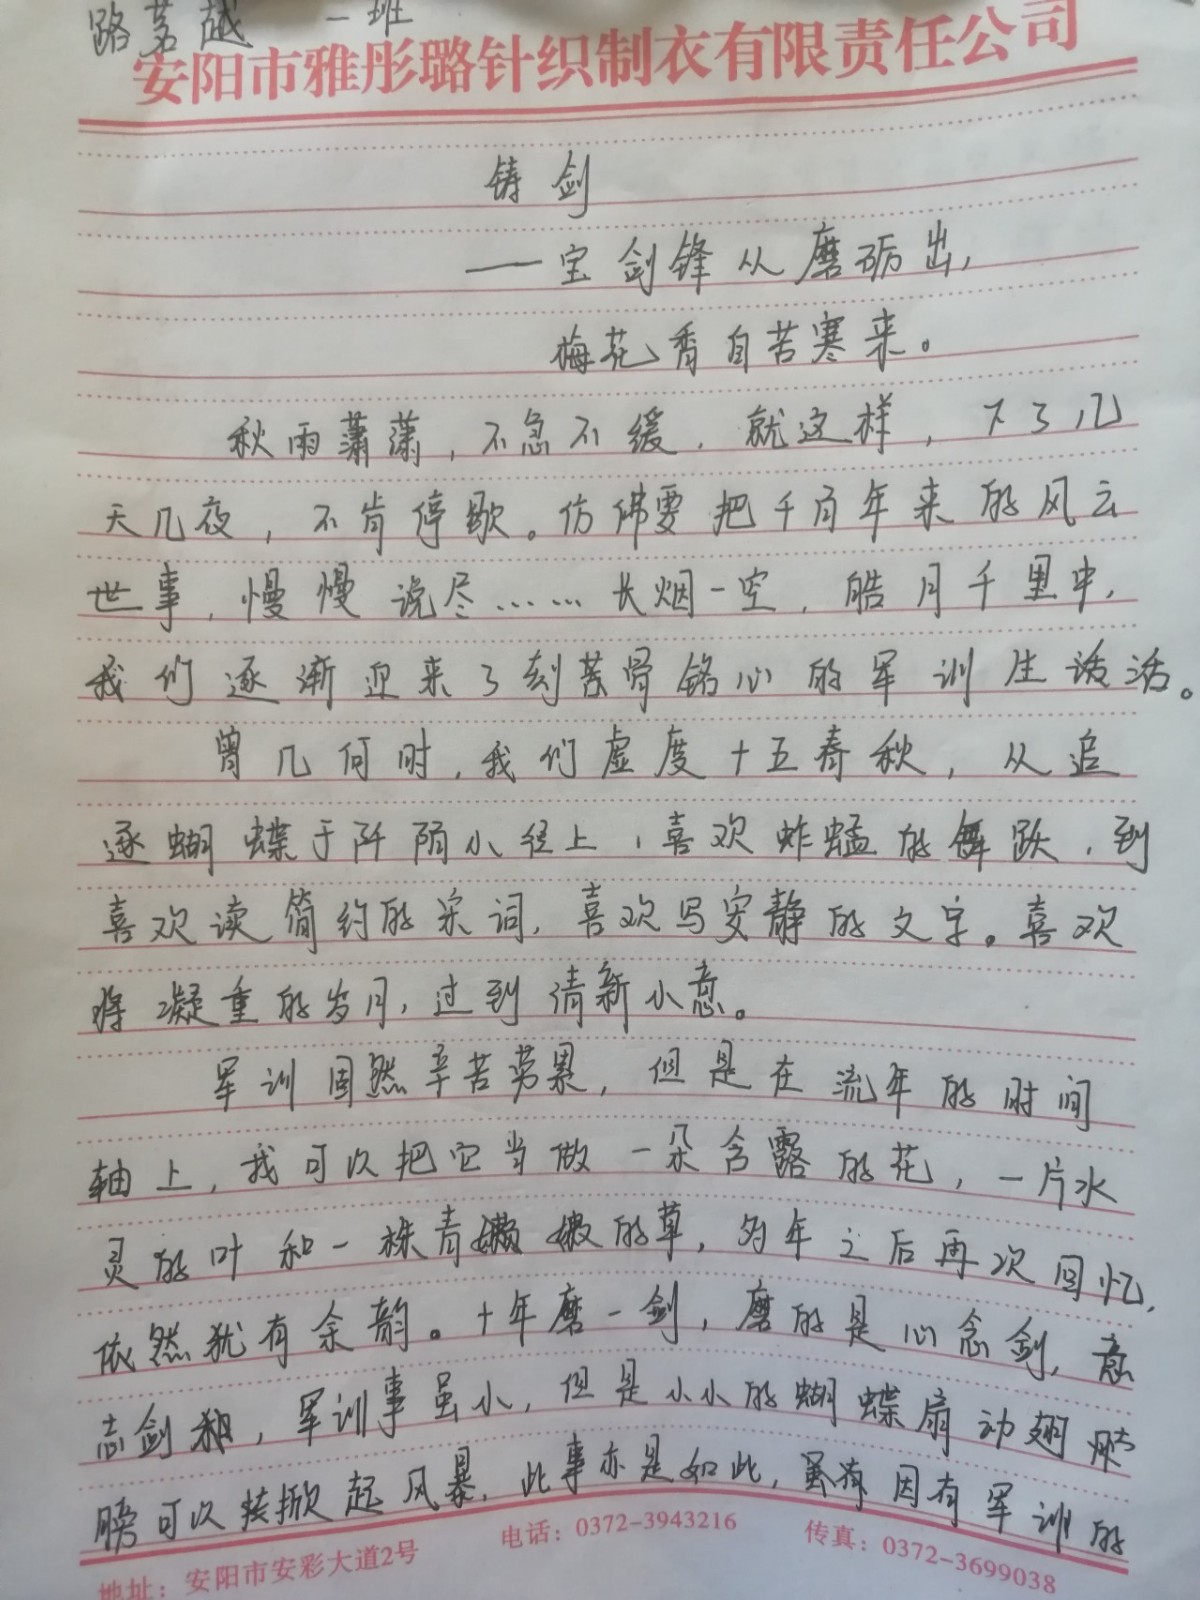 路茗越 一班
安阳市雅彤璐针织制衣有限责任公司
铸剑
——宝剑锋从磨砺出,
梅花香自苦寒来。
秋雨潇潇,不急不缓,就这样,下了几
天几夜,不肯停歇。仿佛要把千百年来的风云
世事,慢慢说尽……长烟一空,皓月千里中,
我们逐渐迎来了刻骨铭心的军训生活。
曾几何时,我们虚度十五春秋,从追
逐蝴蝶于阡陌小径上,喜欢蚱蜢的舞跃,到
喜欢读简约的宋词,喜欢写安静的文字。喜欢
将凝重的岁月,过到清新小意。
军训固然辛苦劳累,但是在流年的时间
轴上,我可以把它当做一朵含露的花,一片水
灵的叶和一株青嫩的草,多年之后再次回忆,
依然犹有余韵。十年磨一剑,磨的是心念剑,意
志剑,军训事虽小,但是小小的蝴蝶扇动翅
膀可以掀起风暴,此事亦是如此,因有军训的
地址:安阳市安彩大道2号 电话:0372-3943216 传真:0372-3699038